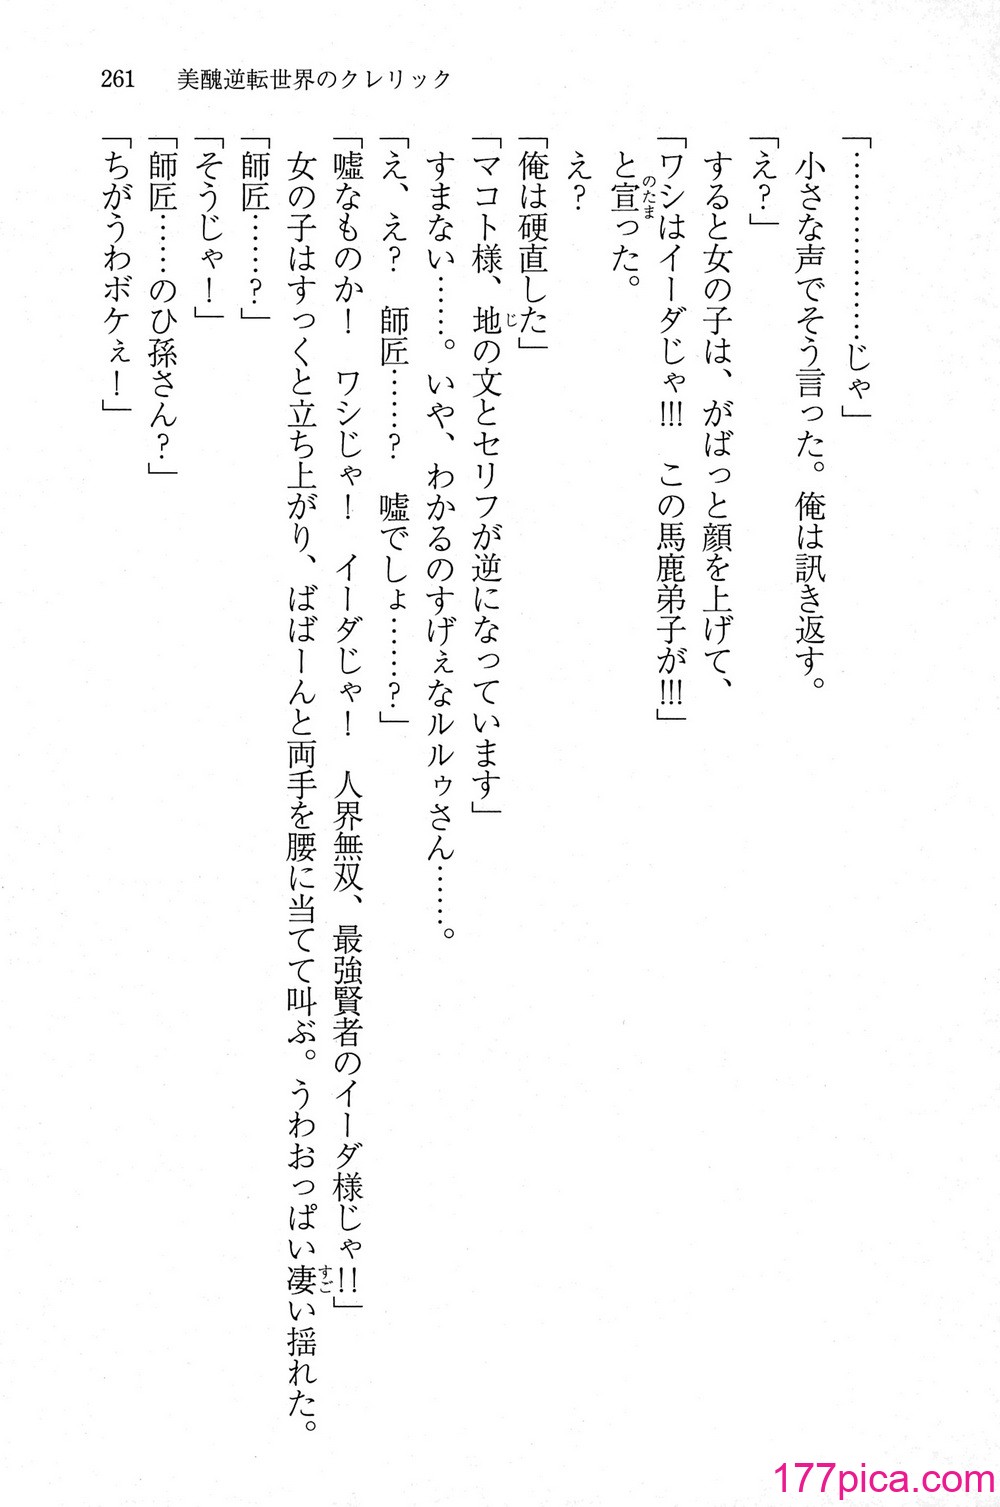 261 美醜逆転世界のクレリック
「……………じゃ」
小さな声でそう言った。俺は訊き返す。
「え？」
すると女の子は、がばっと顔を上げて、
「ワシはイーダじゃ!!! この馬鹿弟子が!!!」
と宣った。
のたま
え？
「俺は硬直した」
「マコト様、地の文とセリフが逆になっています」
じ
すまない……。いや、わかるのすげぇなルルゥさん……。
「え、え？ 師匠……？ 嘘でしょ……？」
「嘘なものか！ ワシじゃ！ イーダじゃ！ 人界無双、最強賢者のイーダ様じゃ!!」
女の子はすっくと立ち上がり、ばばーんと両手を腰に当てて叫ぶ。うわおっぱい凄い揺れた。
すご
「師匠……？」
「そうじゃ！」
「師匠……のひ孫さん？」
「ちがうわボケぇ！」
177pica.com